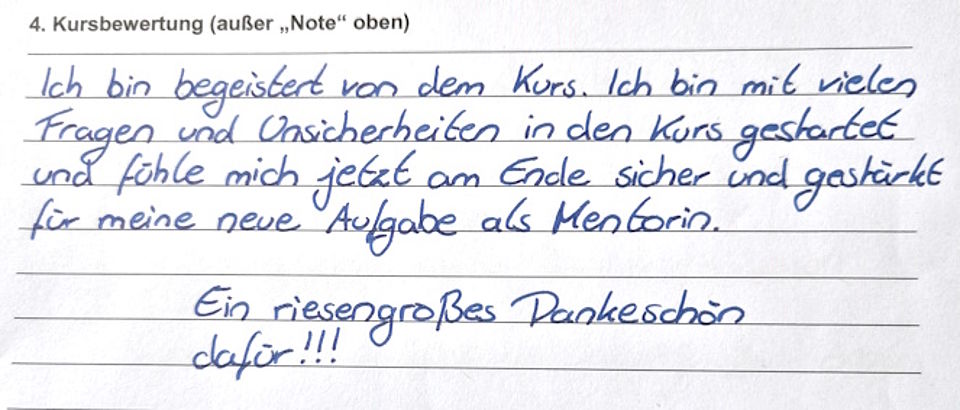 4. Kursbewertung (außer „Note“ oben)
Ich bin begeistert von dem Kurs. Ich bin mit vielen
Fragen und Unsicherheiten in den Kurs gestartet
und fühle mich jetzt am Ende sicher und gestärkt
für meine neue Aufgabe als Mentorin.
Ein riesengroßes Dankeschön
dafür!!!